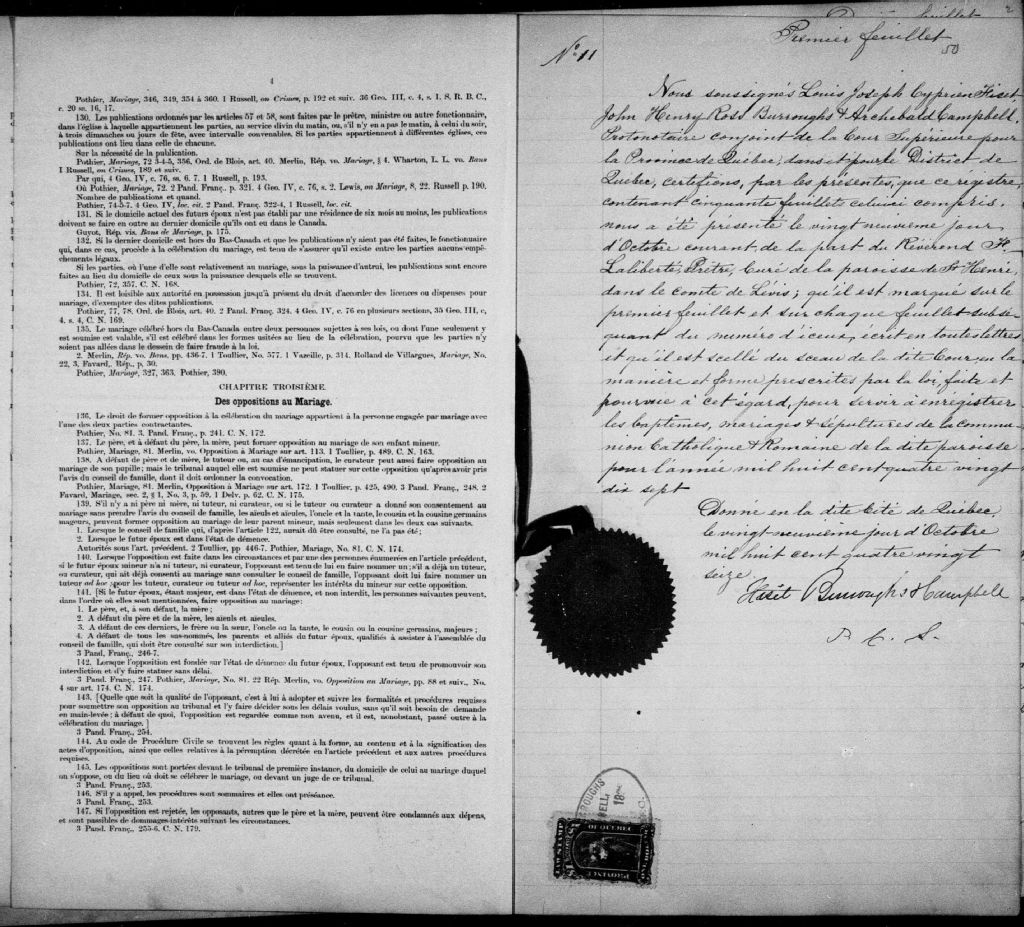 4
Pothier, Mariage, 346, 349, 354 à 360. 1 Russell, on Crimes, p. 192 et suiv. 36 Geo. III, c. 4, s. 1, S. R. B. C.,
c. 20 ss. 16, 17.
130. Les publications ordonnés par les articles 57 et 58, sont faites par le prêtre, ministre ou autre fonctionnaire,
dans l'église à laquelle appartiennent les parties, au service divin du matin, ou, s'il n'y en a pas le matin, à celui du soir,
à trois dimanches ou jours de fête, avec intervalle convenables. Si les parties appartiennent à différentes églises, ces
publications ont lieu dans celle de chacune.
Sur la nécessité de la publication.
Pothier, Mariage, 72 3-4-5, 356, Ord. de Blois, art. 40. Merlin, Rép. vo. Mariage, § 4. Wharton, L. L. vo. Bans
1 Russell, on Crimes, 189 et suiv.
Par qui, 4 Geo. IV, c. 76, ss. 6. 7. 1 Russell, p. 193.
Où Pothier, Mariage, 72. 2 Pand. Franç. p. 321. 4 Geo. IV, c. 76, s. 2. Lewis, on Mariage, 8, 22. Russell p. 190.
Nombre de publications et quand.
Pothier, 74-5-7. 4 Geo. IV, loc. cit. 2 Pand. Franç. 322-4, 1 Russell, loc. cit.
131. Si le domicile actuel des futurs époux n'est pas établi par une résidence de six mois au moins, les publications
doivent se faire en outre au dernier domicile qu'ils ont eu dans le Canada.
Guyot, Rép. vis. Bans de Mariage, p. 175.
132. Si le dernier domicile est hors du Bas-Canada et que les publications n'y aient pas été faites, le fonctionnaire
qui, dans ce cas, procède à la célébration du mariage, est tenu de s'assurer qu'il existe entre les parties aucuns empê-
chements légaux.
Si les parties, où l'une d'elle sont relativement au mariage, sous la puissance d'autrui, les publications sont encore
faites au lieu du domicile de ceux sous la puissance desquels elle se trouvent.
Pothier, 72, 357. C. N. 168.
134. Il est loisible aux autorité en possession jusqu'à présent du droit d'accorder des licences ou dispenses pour
mariage, d'exempter des dites publications.
Pothier, 77, 78. Ord. de Blois, art. 40. 2 Pand. Franç. 324. 4 Geo. IV, c. 76 en plusieurs sections, 35 Geo. III, c,
4, s. 4, C. N. 169.
135. Le mariage célébré hors du Bas-Canada entre deux personnes sujettes à ses lois, ou dont l'une seulement y
est soumise est valable, s'il est célébré dans les formes usitées au lieu de la célébration, pourvu que les parties n'y
soient pas allées dans le dessein de faire fraude à la loi.
2. Merlin, Rép. vo. Bans, pp. 436-7. 1 Toullier, No. 577. 1 Vazeille, p. 314. Rolland de Villargues, Mariage, No.
22, 3, Favard, Rép., p. 30.
Pothier, Mariage, 327, 363. Pothier, 390.
CHAPITRE TROISIÈME.
Des oppositions au Mariage.
136. Le droit de former opposition à la célébration du mariage appartient à la personne engagée par mariage avec
l'une des deux parties contractantes.
Pothier, No. 81. 3. Pand. Franç., p. 241. C. N. 172.
137. Le père, et à défaut du père, la mère, peut former opposition au mariage de son enfant mineur.
Pothier, Mariage, 81. Merlin, vo. Opposition à Mariage sur art. 113. 1 Toullier, p. 489. C. N. 163.
138. A défaut de père et de mère, le tuteur ou, au cas d'émancipation, le curateur peut aussi faire opposition au
mariage de son pupille; mais le tribunal auquel elle est soumise ne peut statuer sur cette opposition qu'après avoir pris
l'avis du conseil de famille, dont il doit ordonner la convocation.
Pothier, Mariage, 81. Merlin, Opposition à Mariage sur art. 172. 1 Toullier, p. 425, 490. 3 Pand. Franç., 248. 2
Favard, Mariage, sec. 2, § 1, No. 3, p. 59. 1 Delv. p. 62. C. N. 175.
139. S'il n'y a ni père ni mère, ni tuteur, ni curateur, ou si le tuteur ou curateur a donné son consentement au
mariage sans prendre l'avis du conseil de famille, les aïeuls et aïeules, l'oncle et la tante, le cousin et la cousine germains
majeurs, peuvent former opposition au mariage de leur parent mineur, mais seulement dans les deux cas suivants.
1. Lorsque le conseil de famille qui, d'après l'article 122, aurait dû être consulté, ne l'a pas été;
2. Lorsque le futur époux est dans l'état de démence.
Autorités sous l'art. précédent. 2 Toullier, pp 446-7. Pothier, Mariage, No. 81. C. N. 174.
140. Lorsque l'opposition est faite dans les circonstances et par une des personnes énumérées en l'article précédent,
si le futur époux mineur n'a ni tuteur, ni curateur, l'opposant est tenu de lui en faire nommer un; s'il a déjà un tuteur,
ou curateur, qui ait déjà consenti au mariage sans consulter le conseil de famille, l'opposant doit lui faire nommer un
tuteur ad hoc; pour les tuteur, curateur ou tuteur ad hoc, représenter les intérêts du mineur sur cette opposition.
141. [Si le futur époux, étant majeur, est dans l'état de démence, et non interdit, les personnes suivantes peuvent,
dans l'ordre où elles sont mentionnées, faire opposition au mariage:
1. Le père, et, à son défaut, la mère;
2. A défaut du père et de la mère, les aïeuls et aïeules.
3. A défaut de ces derniers, le frère ou la sœur, l'oncle ou la tante, le cousin ou la cousine germains, majeurs;
4. A défaut de tous les sus-nommés, les parents et alliés du futur époux, qualifiés à assister à l'assemblée du
conseil de famille, qui doit être consulté sur son interdiction.]
3 Pand, Franç., 246-7.
142. Lorsque l'opposition est fondée sur l'état de démence du futur époux, l'opposant est tenu de promouvoir son
interdiction et d'y faire statuer sans délai.
3 Pand. Franç., 247. Pothier, Mariage, No. 81. 22 Rép. Merlin, vo. Opposition au Mariage, pp. 88 et suiv., No.
4 sur art. 174. C. N. 174.
143. [Quelle que soit la qualité de l'opposant, c'est à lui à adopter et suivre les formalités et procédures requises
pour soumettre son opposition au tribunal et l'y faire décider sous les délais voulus, sans qu'il soit besoin de demande
en main-levée; à défaut de quoi, l'opposition est regardée comme non avenu, et il est, nonobstant, passé outre à la
célébration du mariage.]
3 Pand. Franç., 254.
144. Au code de Procédure Civile se trouvent les règles quant à la forme, au contenu et à la signification des
actes d'opposition, ainsi que celles relatives à la péremption décrétée en l'article précédent et aux autres procédures
requises.
145. Les opposition sont portées devant le tribunal de première instance, du domicile de celui au mariage duquel
on s'oppose, ou du lieu où doit se célébrer le mariage, ou devant un juge de ce tribunal.
3 Pand. Franç., 253.
146. S'il y a appel, les procédures sont sommaires et elles ont préséance.
3 Pand. Franç., 253.
147. Si l'opposition est rejetée, les opposants, autres que le père et la mère, peuvent être condamnés aux dépens,
et sont passibles de dommages-intérêts suivant les circonstances.
3 Pand. Franç., 255-6. C. N. 179.
feuillet
2
Premier feuillet
50
No 11
Nous soussignés Louis Joseph Cyprien Fiset,
John Henry Ross Burroughs & Archibald Campbell,
Protonotaire conjoint de la Cour Supérieure pour
la Province de Québec, dans et pour le District de
Québec, certifions, par les présentes, que ce régistre,
contenant cinquante feuillets celuici compris,
nous a été présenté le vingt neuvième jour
d'Octobre courant de la part du Révérend
Laliberté, Prêtre, Curé de la paroisse de St Henri
dans le comté de Lévis; qu'il est marqué sur le
premier feuillet et sur chaque feuillet subsé-
quant du numéro d'iceux, écrit en toutes lettres
et qu'il est scellé du sceau de la dite Cour, en la
manière et forme prescrites par la loi, faite et
pourvue à cet égard, pour servir à enrégistrer
les Baptêmes, mariages & sépultures de la commu-
nion Catholique & Romaine de la dite paroisse
pour l'année mil huit cent quatre vingt
dix sept
Donné en la dite Cité de Québec,
le vingt neuvième jour d'Octobre
mil huit cent quatre vingt
seize.
Fiset Burroughs & Campbell
P. C. S.
LAW STAMP
OF QUEBEC
PROVINCE
$1